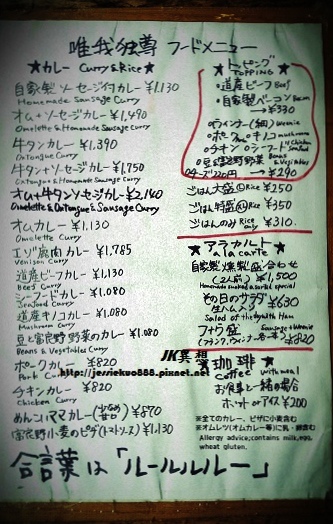 唯我独尊 フードメニュー
★カレー Curry & Rice★
自家製ソーセージ付カレー ¥1,130
Homemade Sausage Curry
オム+ソーセージカレー ¥1,490
Omelette & Homemade Sausage Curry
牛タンカレー ¥1,390
Oxtongue Curry
牛タン+ソーセージカレー ¥1,750
Oxtongue & Homemade Sausage Curry
オム+牛タンソーセージカレー ¥2,140
Omelette & Oxtongue & Sausage Curry
オムカレー ¥1,130
Omelette Curry
エゾ鹿肉カレー ¥1,785
Venison Curry
道産ビーフカレー ¥1,130
Beef Curry
シーフードカレー ¥1,080
Seafood Curry
道産キノコカレー ¥1,080
Mushroom Curry
豆と富良野野菜のカレー ¥1,080
Beans & Vegetables Curry
ポークカレー ¥820
Pork Curry
チキンカレー ¥820
Chicken Curry
めんこいママカレー ¥870
富良野小麦のピザ(トマトソース) ¥1,130
合言葉は「ルールルルー」
★トッピング★
TOPPING
・道産ビーフ Beef
・自家製ベーコン Bacon
→¥330
・ウィンナー Weenie
・ポーク Pork ・キノコ mushrooms
・チキン Chicken ・シーフード Seafood
・豆と富良野野菜 Beans & Vegetables
・チーズ 220円 →¥290
ごはん大盛 Ⓛ Rice ¥250
ごはん特盛 Rice ¥350
ごはんのみ Rice only ¥310
アラカルト
a la carte
自家製燻製盛合わせ
(2人前) ¥1,500
Homemade smoked assorted special
その日のサラダ ¥630
生ハム入り
Salad of the day with Ham
フチ盛 Sausage + Weenie
¥820
珈琲
coffee with meal
お食事と一緒の場合
ホット or アイス ¥200
※全てのカレー、ピザに小麦含む
※オムレツ(オムカレー等)に乳・卵含む
Allergy advice; contains milk, egg,
wheat gluten.
JK異想
http://jessiekuo888.pixnet.net